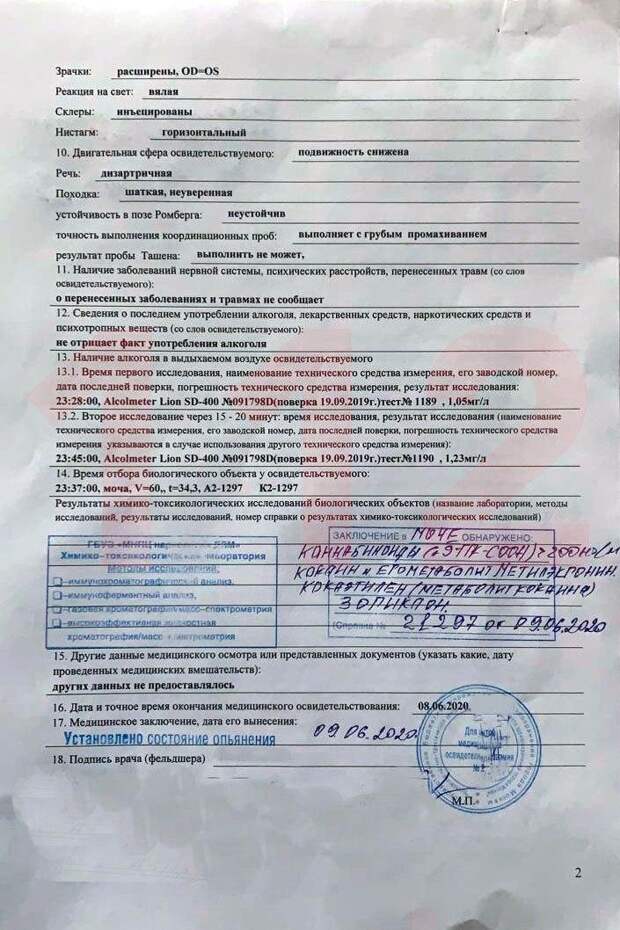 Зрачки: расширены, OD=OS
Реакция на свет: вялая
Склеры: инъецированы
Нистагм: горизонтальный
10. Двигательная сфера освидетельствуемого: подвижность снижена
Речь: дизартричная
Походка: шаткая, неуверенная
устойчивость в позе Ромберга: неустойчив
точность выполнения координационных проб: выполняет с грубым промахиванием
результат пробы Ташена: выполнить не может,
11. Наличие заболеваний нервной системы, психических расстройств, перенесенных травм (со слов
освидетельствуемого):
о перенесенных заболеваниях и травмах не сообщает
12. Сведения о последнем употреблении алкоголя, лекарственных средств, наркотических средств и
психотропных веществ (со слов освидетельствуемого):
не отрицает факт употребления алкоголя
13. Наличие алкоголя в выдыхаемом воздухе освидетельствуемого
13.1. Время первого исследования, наименование технического средства измерения, его заводской номер,
дата последней поверки, погрешность технического средства измерения, результат исследования:
23:28:00, Alcolmeter Lion SD-400 №091798D(поверка 19.09.2019г.)тест№ 1189 , 1,05мг/л
13.2. Второе исследование через 15 - 20 минут: время исследования, результат исследования (наименование
технического средства измерения, его заводской номер, дата последней поверки, погрешность технического средства
измерения указываются в случае использования другого технического средства измерения):
23:45:00, Alcolmeter Lion SD-400 №091798D(поверка 19.09.2019г.)тест№1190 , 1,23мг/л
14. Время отбора биологического объекта у освидетельствуемого:
23:37:00, моча, V=60,, t=34,3, А2-1297 К2-1297
Результаты химико-токсикологических исследований биологических объектов (название лаборатории, методы
исследований, результаты исследований, номер справки о результатах химико-токсикологических исследований)
Химико-токсикологическая лаборатория
Методы исследований:
иммунохроматографический анализ,
иммуноферментный анализ,
газовая хроматография/масс-спектрометрия
высокоэффективная жидкостная
хроматография/масс-спектрометрия
ЗАКЛЮЧЕНИЕ в МОЧЕ ОБНАРУЖЕНО:
КАННАБИНОИДЫ
КОКАИН и его МЕТАБОЛИТ МЕТИЛЭКГОНИН.
КОКАЭТИЛЕН (МЕТАБОЛИТ КОКАИНА)
ЗОПИКЛОН.
(Справка № 21297 от 09.06.2020
15. Другие данные медицинского осмотра или представленных документов (указать какие, дату
проведенных медицинских вмешательств):
других данных не предоставлялось
16. Дата и точное время окончания медицинского освидетельствования: 08.06.2020
17. Медицинское заключение, дата его вынесения:
Установлено состояние опьянения 09.06.2020
18. Подпись врача (фельдшера)
М.П.
2